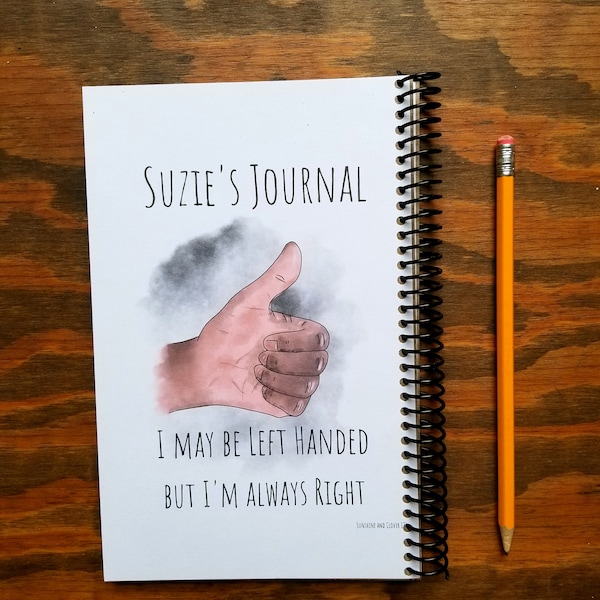 Suzie's Journal
I may be Left Handed
but I'm always Right
Sunshine and Clover